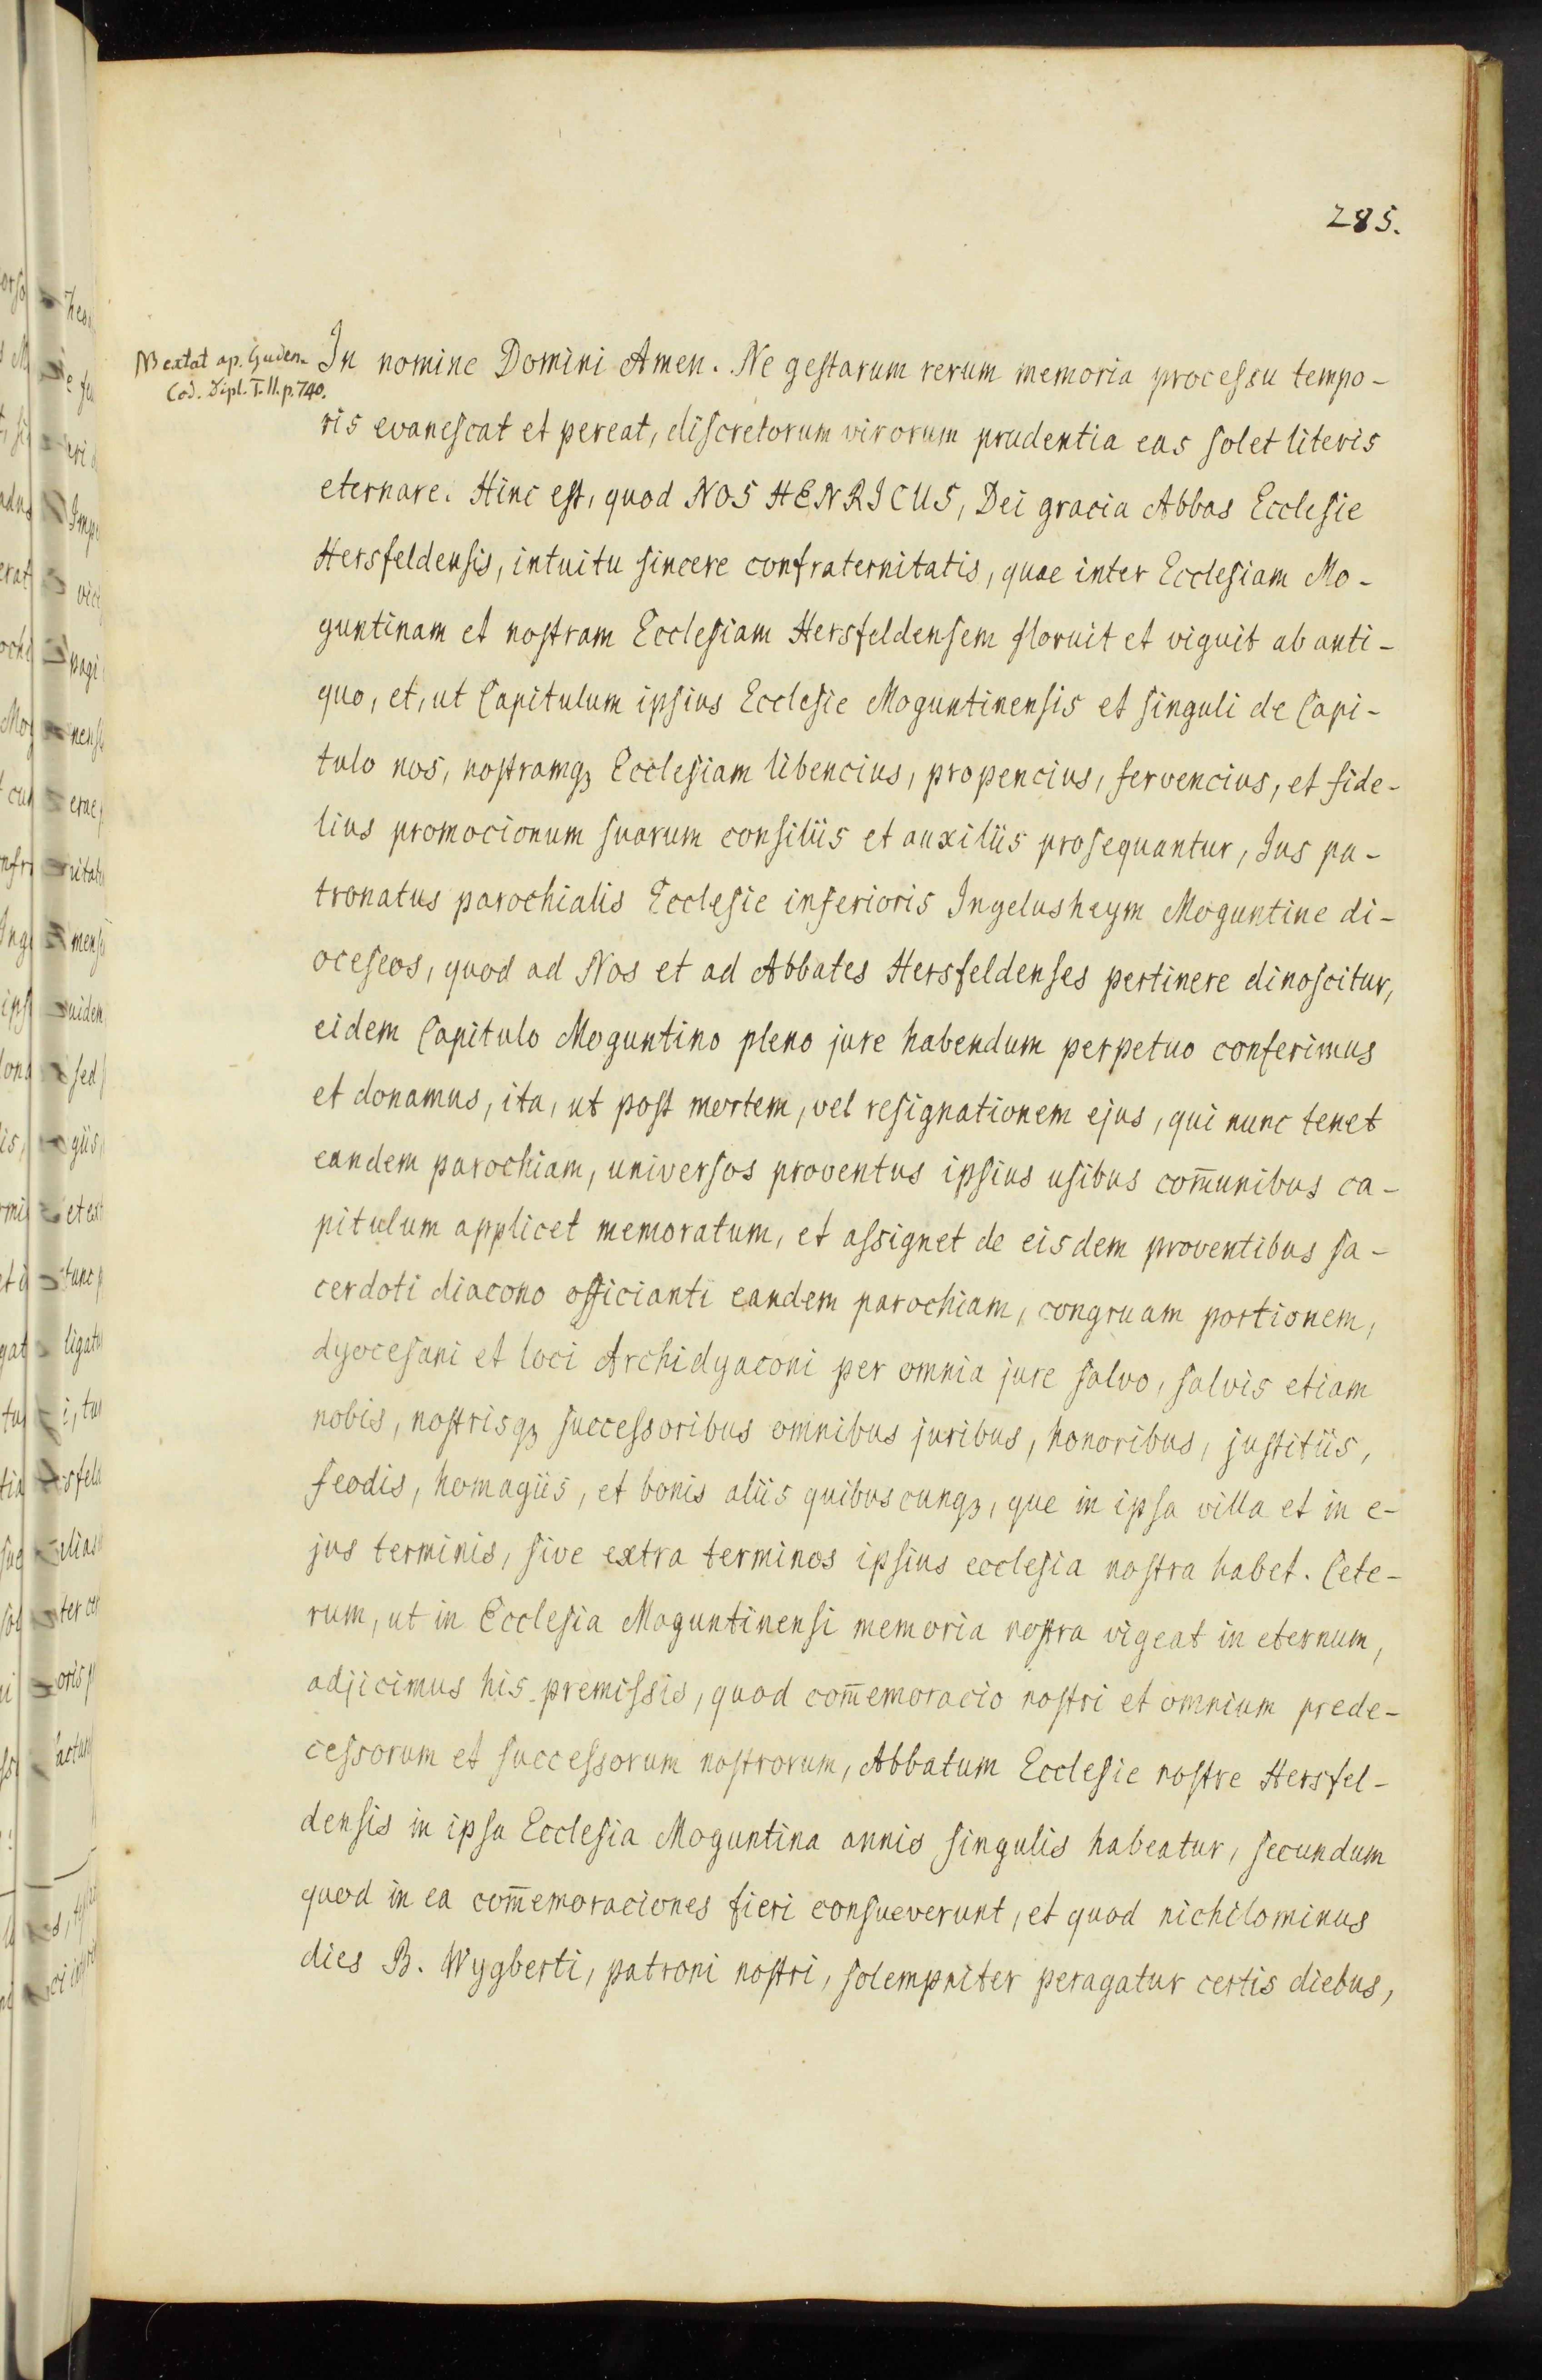 285.
NB extat ap. Guden.
Cod. Dipl. T. II. p. 740.
In nomine Domini Amen. Ne gestarum rerum memoria processu tempo-
ris evanescat et pereat, discretorum virorum prudentia eas solet literis
eternare. Hinc est, quod NOS HENRICUS, Dei gracia Abbas Ecclesie
Hersfeldensis, intuitu sincere confraternitatis, quae inter Ecclesiam Mo-
guntinam et nostram Ecclesiam Hersfeldensem floruit et viguit ab anti-
quo, et, ut Capitulum ipsius Ecclesie Moguntinensis et singuli de Capi-
tulo nos, nostramqꝫ Ecclesiam libencius, propencius, fervencius, et fide-
lius promocionum suarum consiliis et auxiliis prosequantur, Jus pa-
tronatus parochialis Ecclesie inferioris Ingelusheym Moguntine di-
oceseos, quod ad Nos et ad Abbates Hersfeldenses pertinere dinoscitur,
eidem Capitulo Moguntino pleno jure habendum perpetuo conferimus
et donamus, ita, ut post mortem, vel resignationem ejus, qui nunc tenet
eandem parochiam, universos proventus ipsius usibus com̄unibus ca-
pitulum applicet memoratum, et assignet de eisdem proventibus sa-
cerdoti diacono officianti eandem parochiam, congruam portionem,
dyocesani et loci Archidyaconi per omnia jure salvo, salvis etiam
nobis, nostrisqꝫ successoribus omnibus juribus, honoribus, justitiis,
feodis, homagiis, et bonis aliis quibuscunqꝫ, que in ipsa villa et in e-
jus terminis, sive extra terminos ipsius ecclesia nostra habet. Cete-
rum, ut in Ecclesia Moguntinensi memoria nostra vigeat in eternum,
adjicimus his premissis, quod com̄emoracio nostri et omnium prede-
cessorum et successorum nostrorum, Abbatum Ecclesie nostre Hersfel-
densis in ipsa Ecclesia Moguntina annis singulis habeatur, secundum
quod in ea com̄emoraciones fieri consueverunt, et quod nichilominus
dies B. Wygberti, patroni nostri, solempniter peragatur certis diebus,